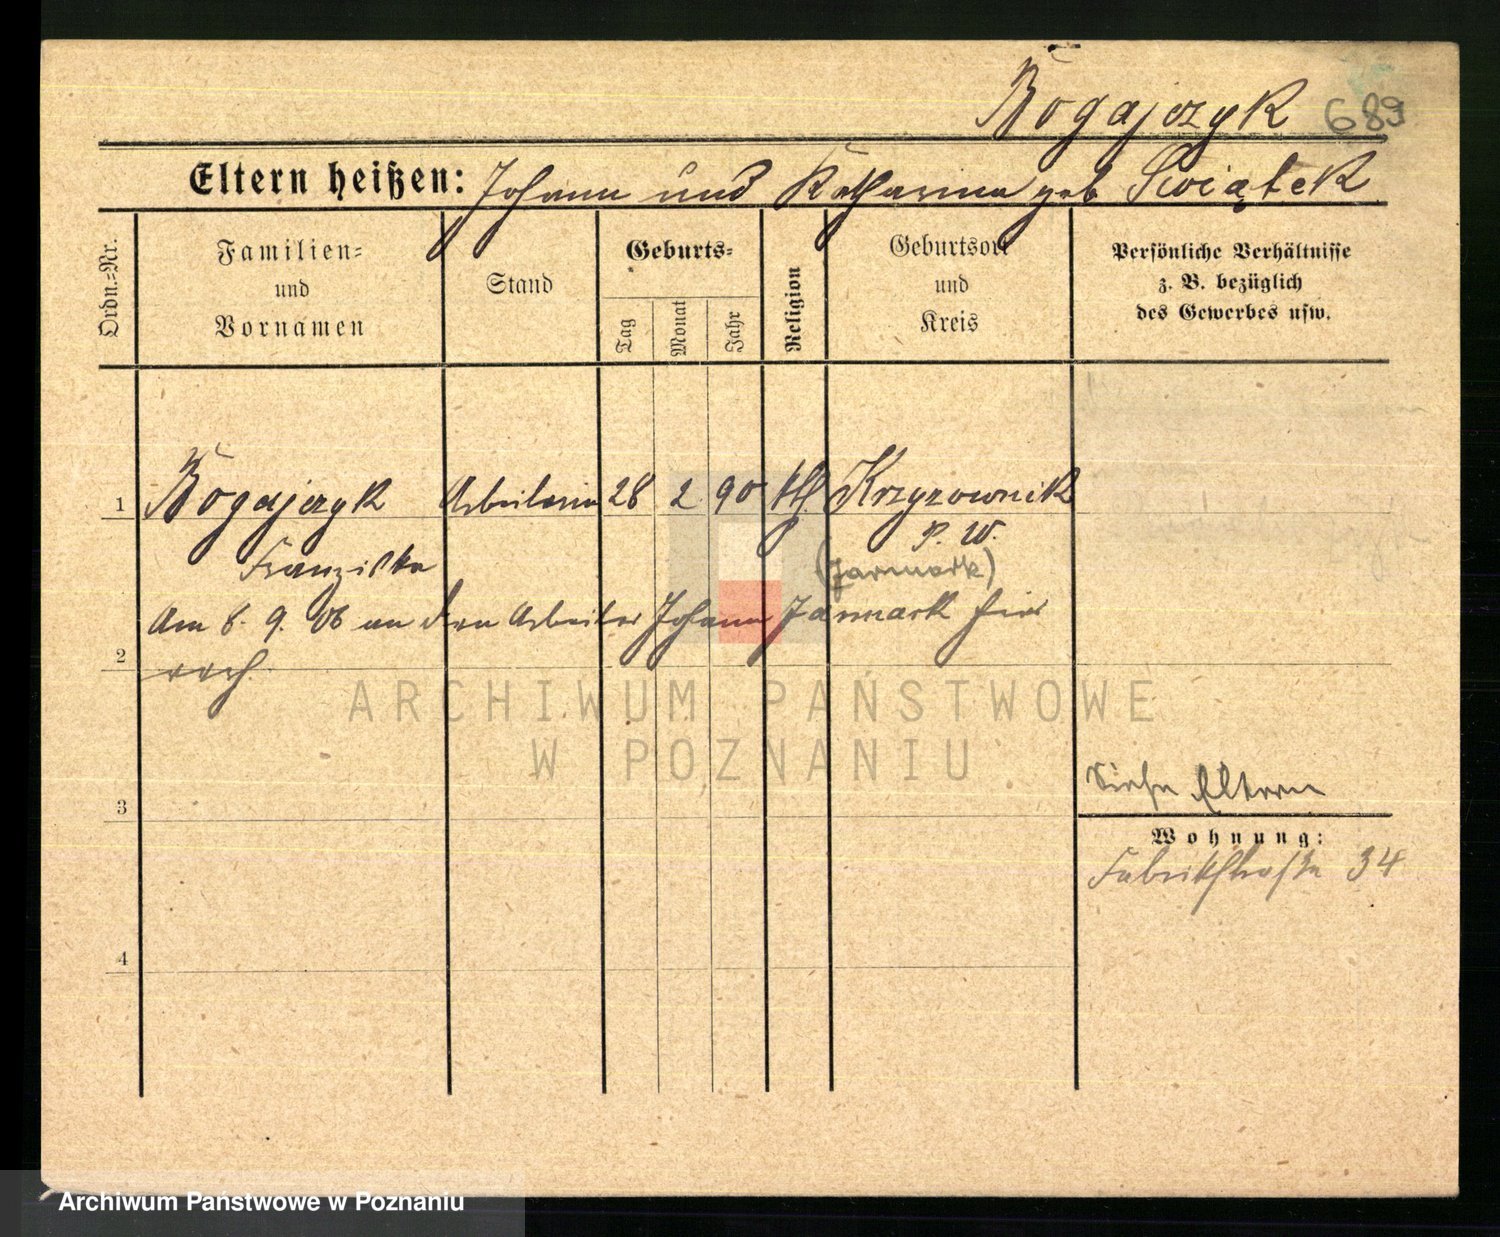 Rogajczyk 689
Eltern heißen: Johann und Katharina geb Swiątek
Ordn.-Nr.
Familien-
und
Vornamen
Stand
Geburts-
Tag
Monat
Jahr
Religion
Geburtsort
und
Kreis
Persönliche Verhältnisse
z. B. bezüglich
des Gewerbes usw.
1 Rogajczyk Arbeiterin 28 2 90 kth Krzyzownik
P. W.
Franziska (Jarmark)
Am 8. 9. 06 an den Arbeiter Johann Jarmark hier
2
3
4
ARCHIWUM PAŃSTWOWE
W POZNANIU
Siehe Eltern
Wohnung:
Fabrikstraße 34
Archiwum Państwowe w Poznaniu